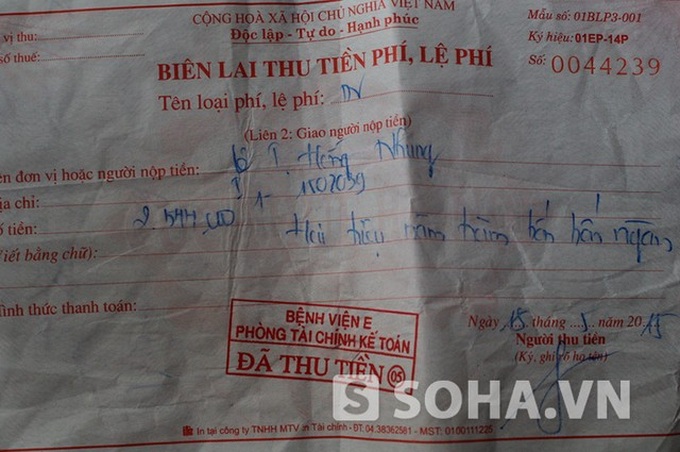 CỘNG HOÀ XÃ HỘI CHỦ NGHĨA VIỆT NAM
Độc lập - Tự do - Hạnh phúc
Mẫu số: 01BLP3-001
Ký hiệu: 01EP-14P
Số: 0044239
vị thu:
số thuế:
BIÊN LAI THU TIỀN PHÍ, LỆ PHÍ
Tên loại phí, lệ phí:
(Liên 2: Giao người nộp tiền)
ên đơn vị hoặc người nộp tiền: T. Hồng Nhung
ịa chỉ: 1102039
ố tiền: 2.544.000 Hai triệu năm trăm bốn bốn ngàn
iết bằng chữ)
ình thức thanh toán:
BỆNH VIỆN E
PHÒNG TÀI CHÍNH KẾ TOÁN
ĐÃ THU TIỀN 05
Ngày 15 tháng 5 năm 2015
Người thu tiền
(Ký, ghi rõ họ tên)
SOHA.VN
In tại công ty TNHH MTV In Tài chính - ĐT: 04.38362581 - MST: 0100111225